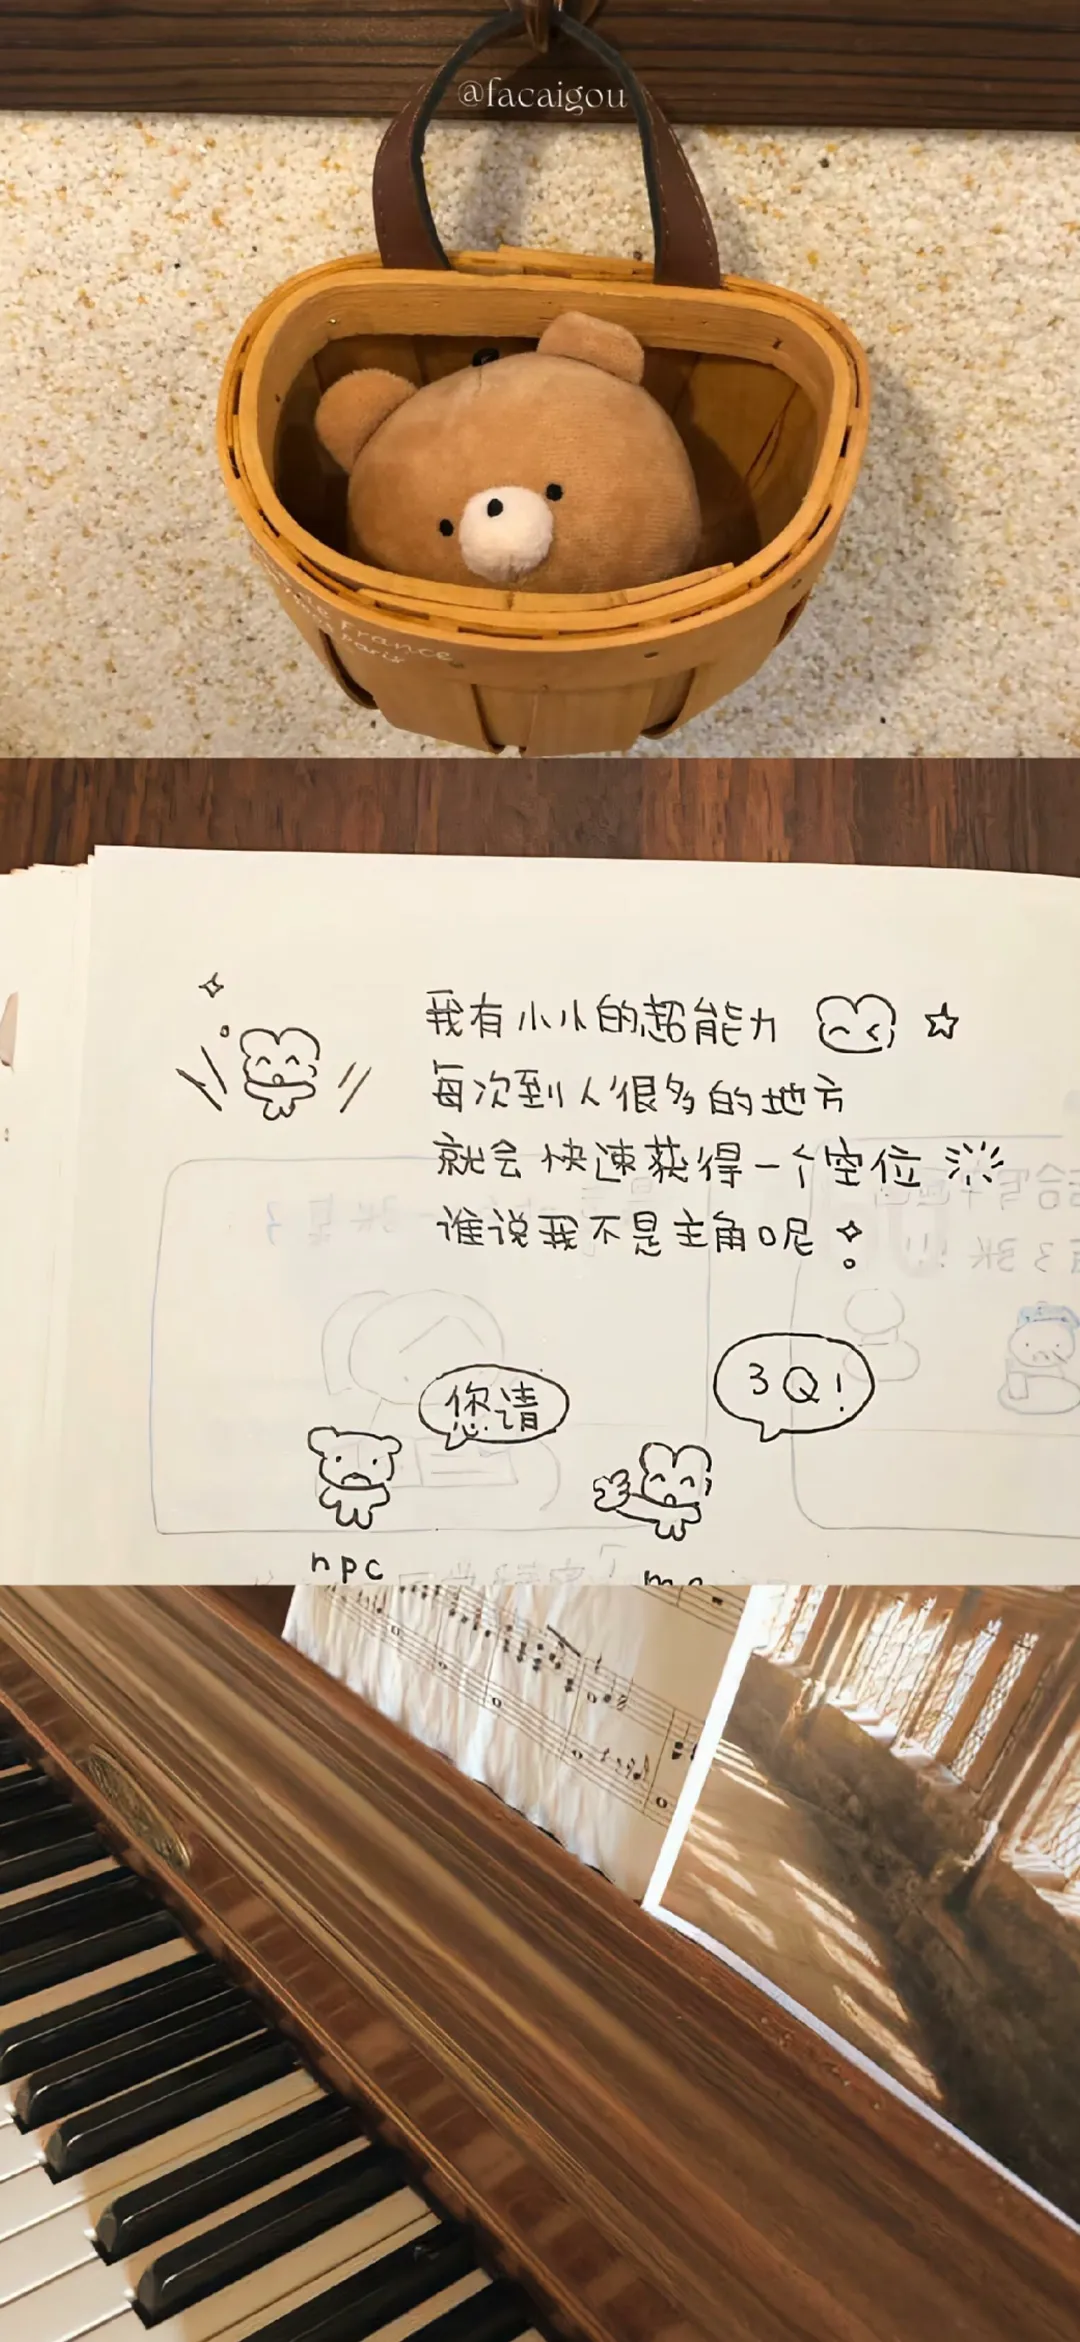 @facaigou
我有小小的超能力
每次到人很多的地方
就会快速获得一个空位
谁说我不是主角呢
您请
3Q!
npc